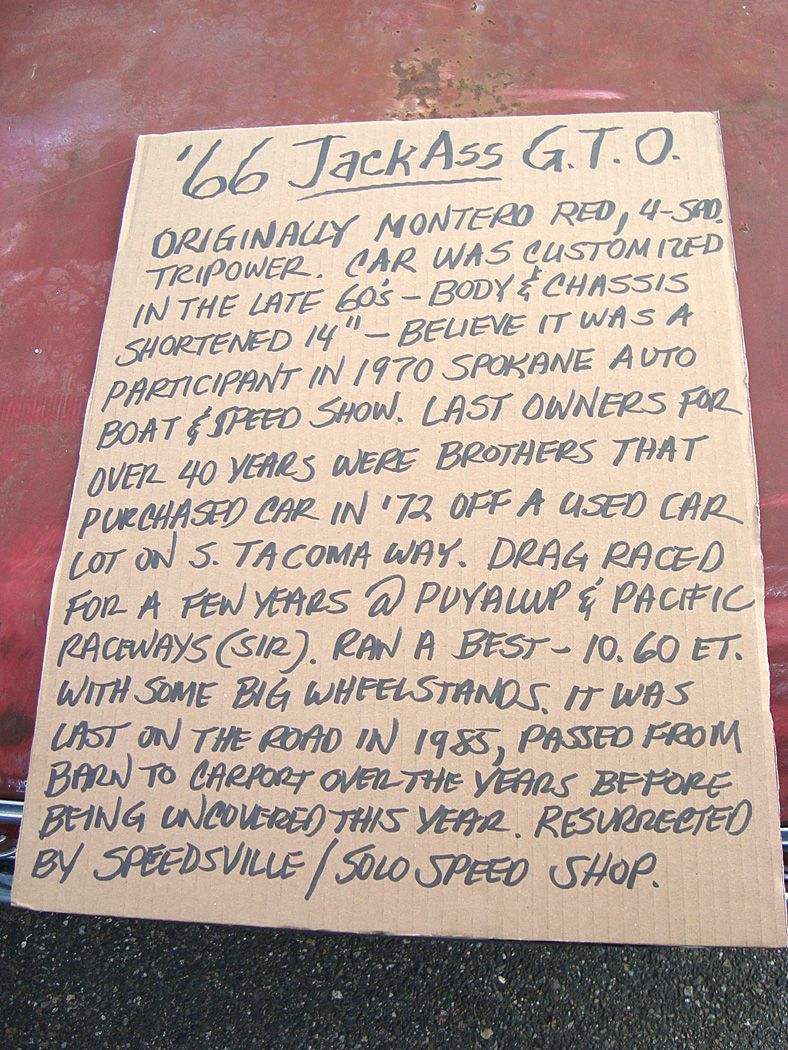 '66 JackAss G.T.O.
ORIGINALLY MONTERO RED, 4-SPD.
TRIPOWER. CAR WAS CUSTOMIZED
IN THE LATE 60's - BODY & CHASSIS
SHORTENED 14" - BELIEVE IT WAS A
PARTICIPANT IN 1970 SPOKANE AUTO
BOAT & SPEED SHOW. LAST OWNERS FOR
OVER 40 YEARS WERE BROTHERS THAT
PURCHASED CAR IN '72 OFF A USED CAR
LOT ON S. TACOMA WAY. DRAG RACED
FOR A FEW YEARS @ PUYALLUP & PACIFIC
RACEWAYS (SIR). RAN A BEST - 10.60 ET.
WITH SOME BIG WHEELSTANDS. IT WAS
LAST ON THE ROAD IN 1985, PASSED FROM
BARN TO CARPORT OVER THE YEARS BEFORE
BEING UNCOVERED THIS YEAR. RESURRECTED
BY SPEEDSVILLE / SOLO SPEED SHOP.